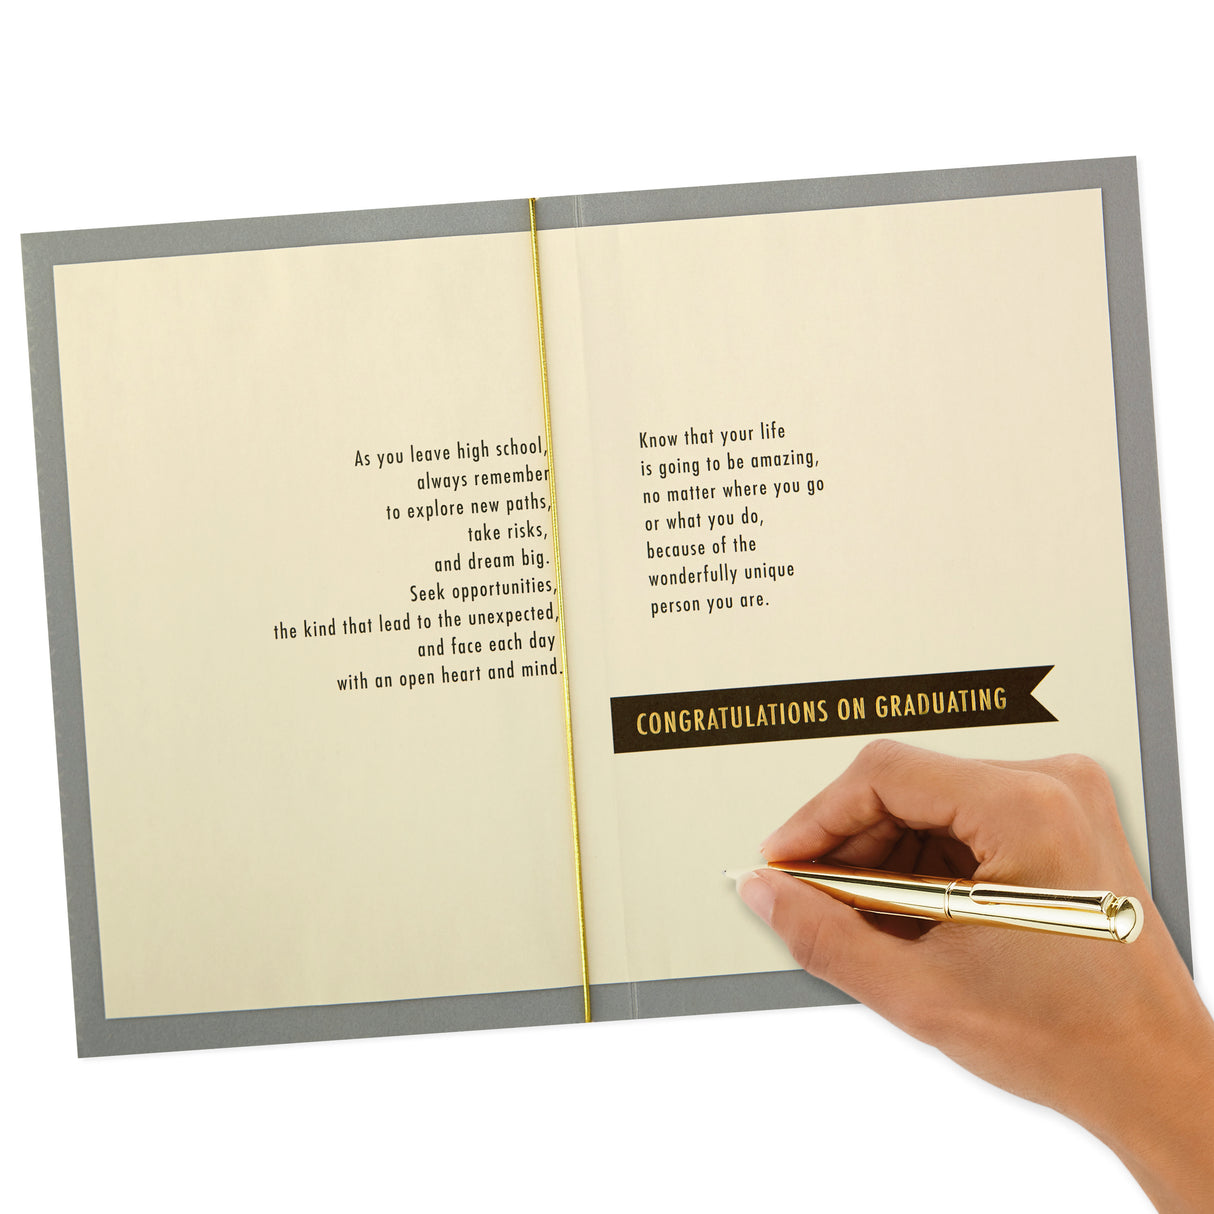 As you leave high school,
always remember
to explore new paths,
take risks,
and dream big.
Seek opportunities,
the kind that lead to the unexpected,
and face each day
with an open heart and mind.
Know that your life
is going to be amazing,
no matter where you go
or what you do,
because of the
wonderfully unique
person you are.
CONGRATULATIONS ON GRADUATING